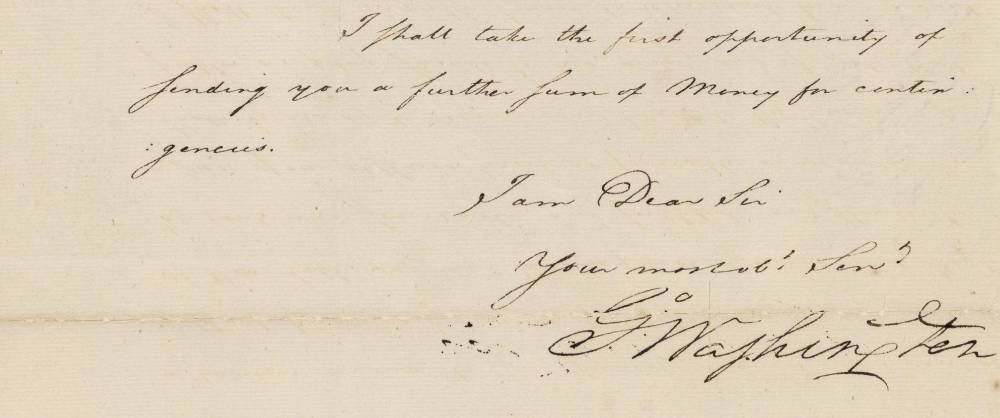 I shall take the first opportunity of
sending you a further sum of Money for contin:
:gencies.
I am Dear Sir
Your most ob.t Serv.t
G.o Washington